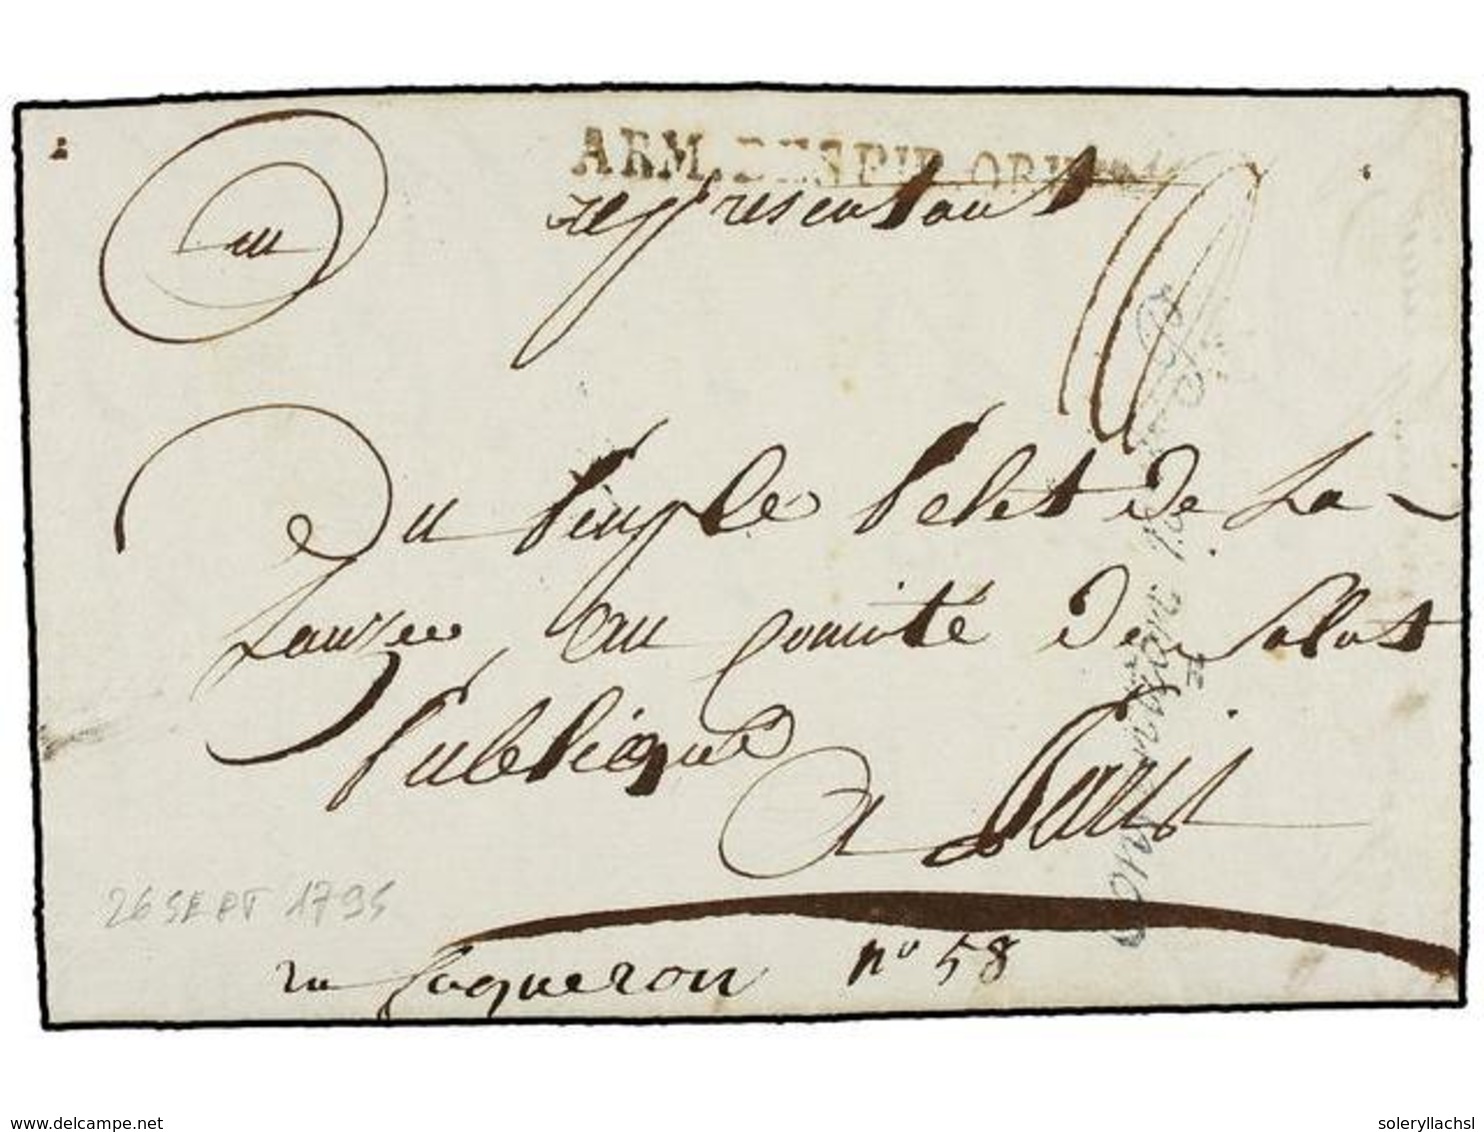 ARM. DES PIR. ORIENT
au
representant
Du Peuple Pelet de La
Lauzee au Comité De Salut
Publique
a Paris
26 SEPT 1795
ru Coqueron no 58
delcampe.net
soleryllachsl